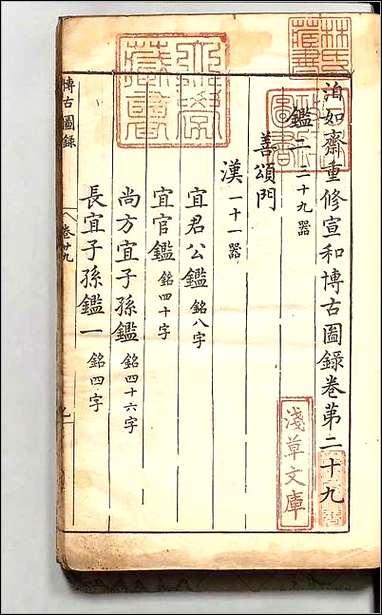 泊如齋重修宣和博古圖錄卷第二十九
鑑二 二十九器
善頌門
漢 一十一器
宜君公鑑 銘八字
宜官鑑 銘四十字
尚方宜子孫鑑 銘四十六字
長宜子孫鑑一 銘四字
博古圖錄 卷廿九
淺草文庫
林氏藏書